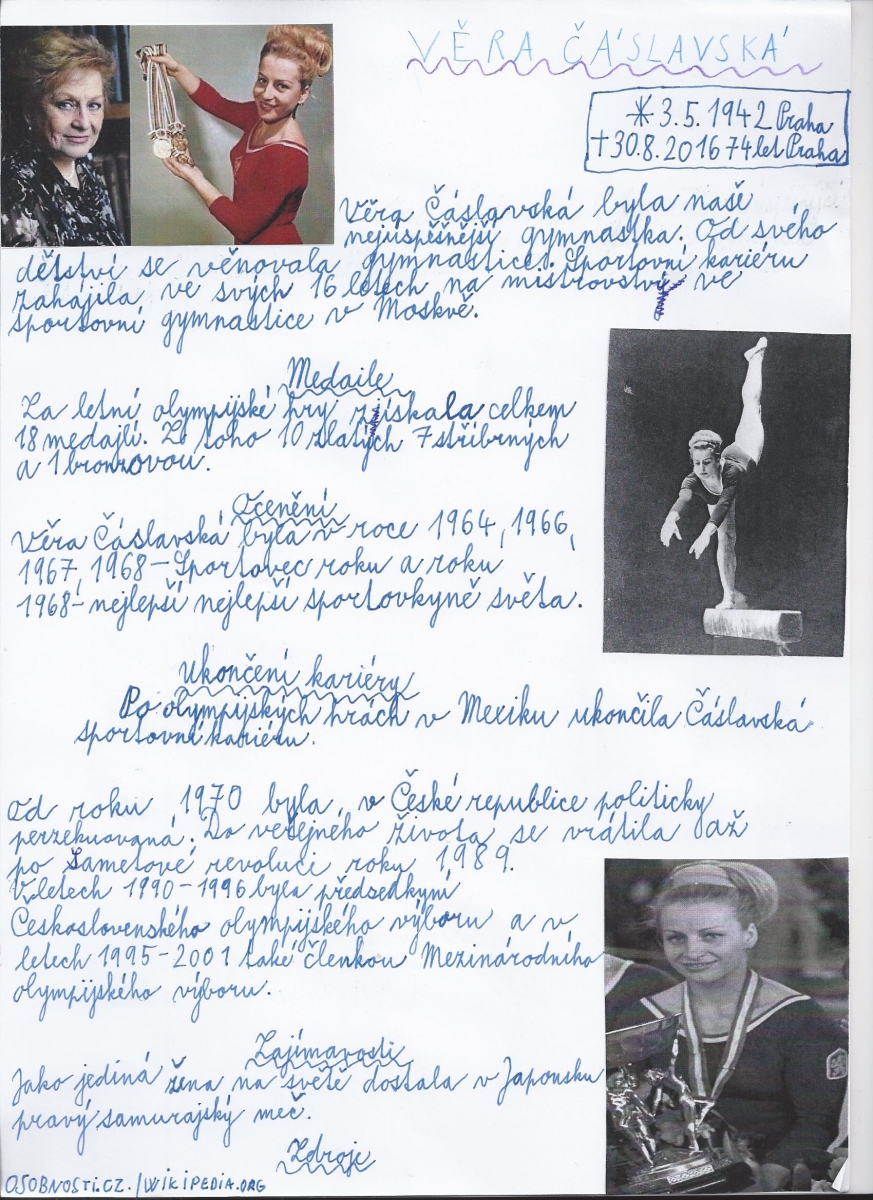 VĚRA ČÁSLAVSKÁ
* 3.5.1942 Praha
†30.8.2016 74 let Praha
Věra Čáslavská byla naše
nejúspěšnější gymnastka. Od svého
dětství se věnovala gymnastice. Sportovní kariéru
zahájila ve svých 16 letech na mistrovství ve
sportovní gymnastice v Moskvě.
Medaile
Za letní olympijské hry získala celkem
18 medajlí. Z toho 10 zlatých 7 stříbrných
a 1 bronzovou.
Ocenění
Věra Čáslavská byla v roce 1964, 1966,
1967, 1968 – Sportovec roku a roku
1968 - nejlepší nejlepší sportovkyně světa.
Ukončení kariéry
Po olympijských hrách v Mexiku ukončila Čáslavská
sportovní kariéru.
Od roku 1970 byla v České republice politicky
perzekuovaná. Do veřejného života se vrátila až
po Sametové revoluci roku 1989.
V letech 1990 – 1996 byla předsedkyní
Československého olympijského výboru a v
letech 1995 - 2001 také členkou Mezinárodního
olympijského výboru.
Zajímavosti
Jako jediná žena na světě dostala v Japonsku
pravý samurajský meč.
Zdroje
OSOBNOSTI.CZ./WIKIPEDIA.ORG